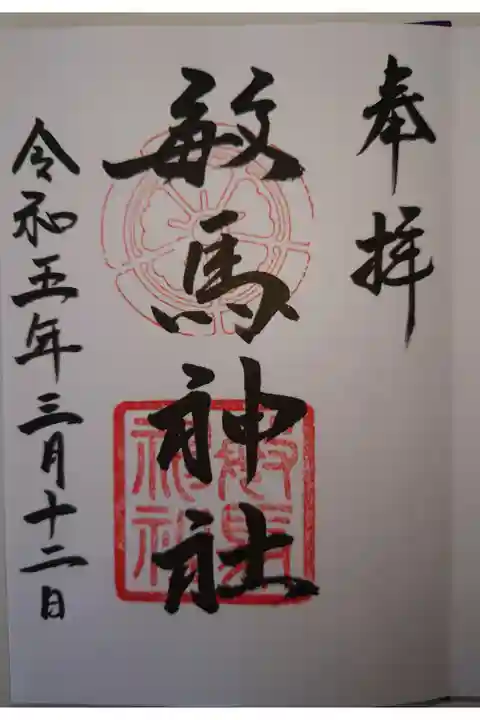 奉拝
敏馬神社
令和五年三月十二日
敏馬神社